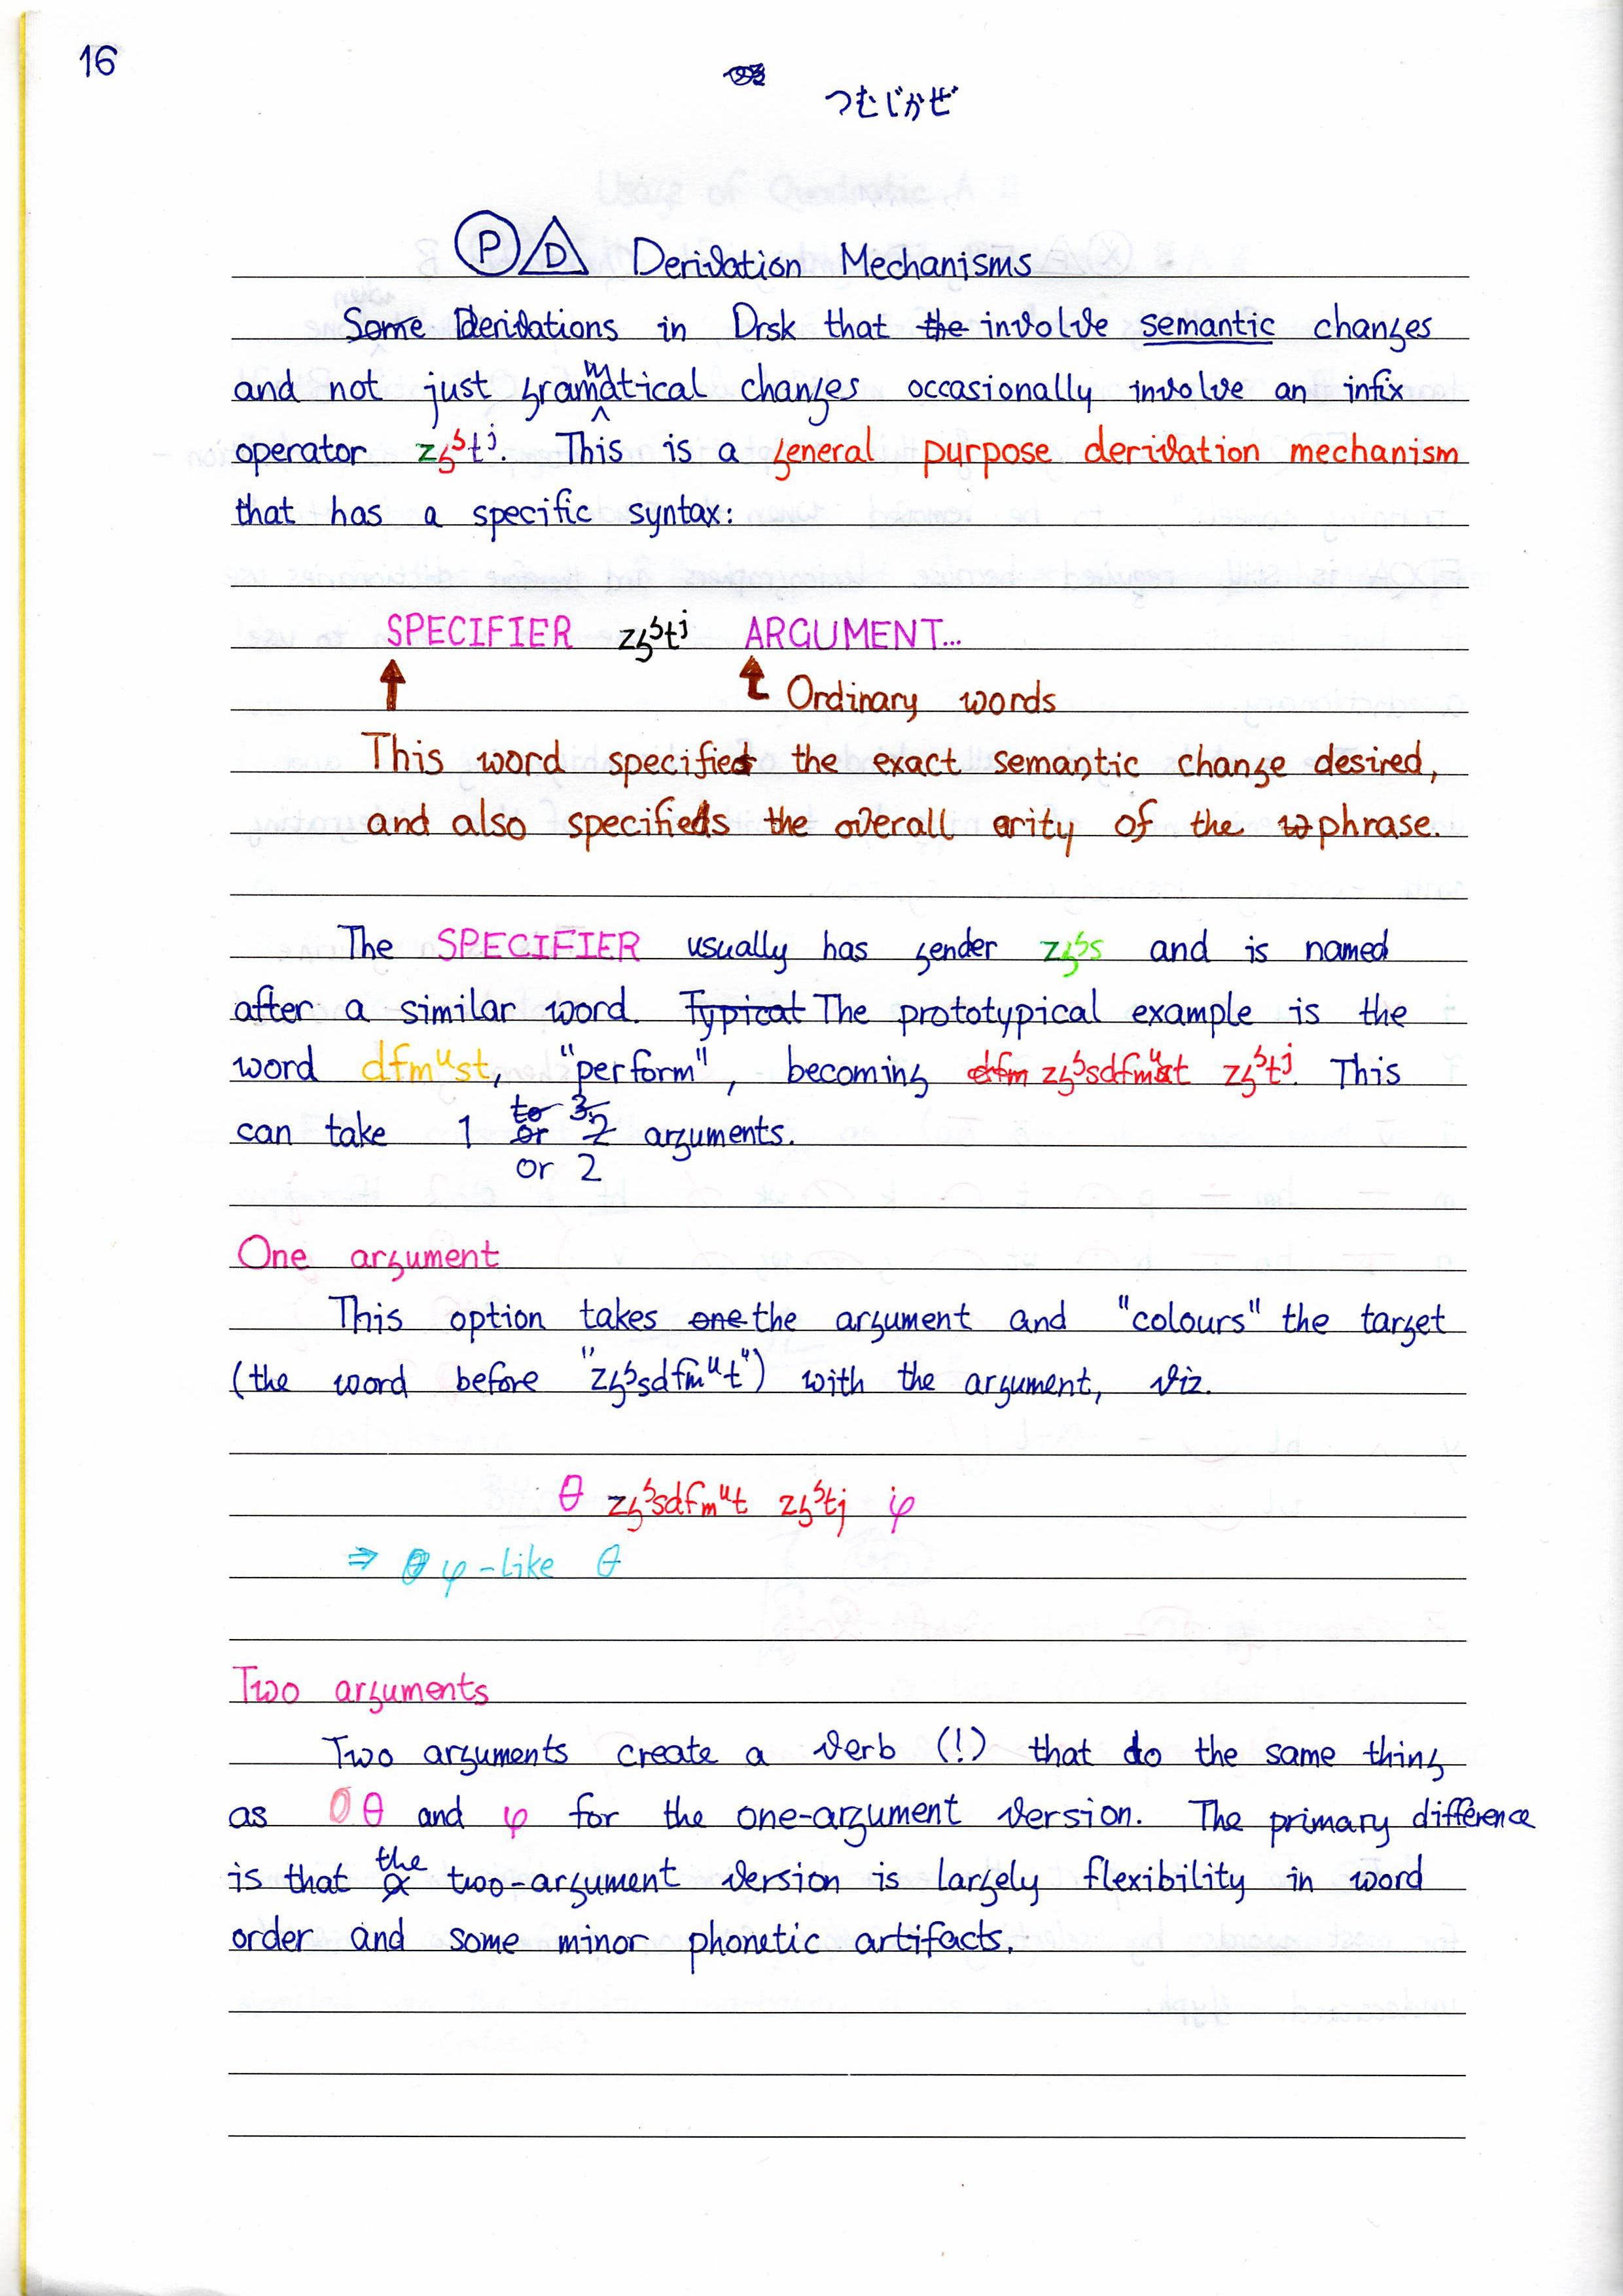 16
つむじかぜ
P D Derivation Mechanisms
Some Derivations in Drsk that the involve semantic changes
and not just grammatical changes occasionally involve an infix
operator zg⁵tʲ. This is a general purpose derivation mechanism
that has a specific syntax:
SPECIFIER zg⁵tʲ ARGUMENT...
Ordinary words
This word specifies the exact semantic change desired,
and also specifies the overall arity of the phrase.
The SPECIFIER usually has gender zg⁵s and is named
after a similar word. Typical The prototypical example is the
word dfmᵘst, "perform", becoming dfm zg⁵sdfmᵘt zg⁵tʲ. This
can take 1 or 2 arguments.
One argument
This option takes one the argument and "colours" the target
(the word before "zg⁵sdfmᵘt") with the argument, viz.
θ zg⁵sdfmᵘt zg⁵tj φ
⇒ φ-like θ
Two arguments
Two arguments create a verb (!) that do the same thing
as θ and φ for the one-argument version. The primary difference
is that the two-argument version is largely flexibility in word
order and some minor phonetic artifacts.